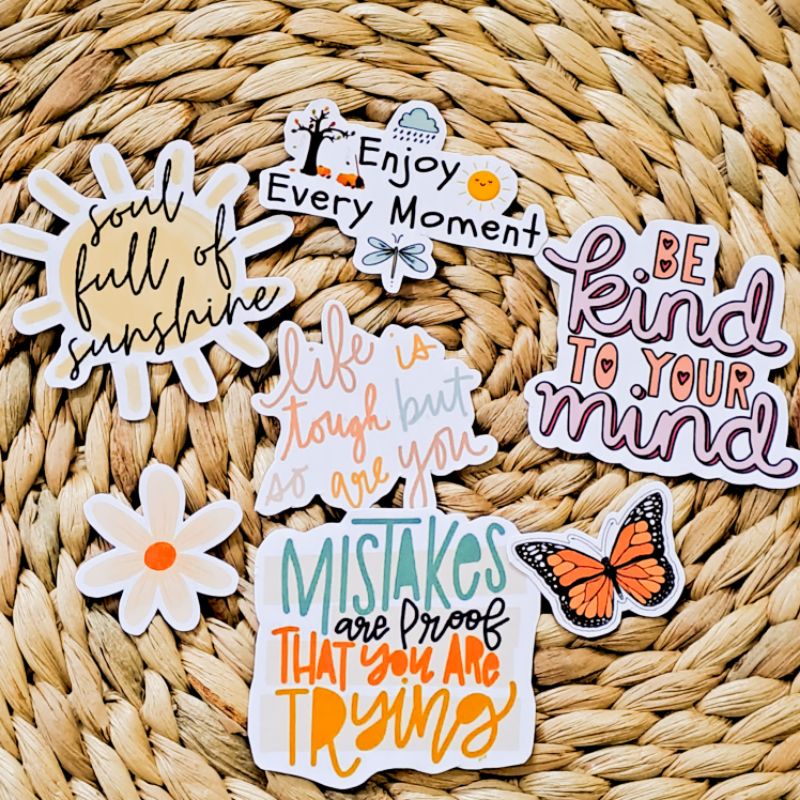 Enjoy
Every Moment
soul
full of
sunshine
BE
kind
TO YOUR
mind
life is
tough but
so are you
MISTAKES
are PROOF
THAT YOU ARE
TRYING